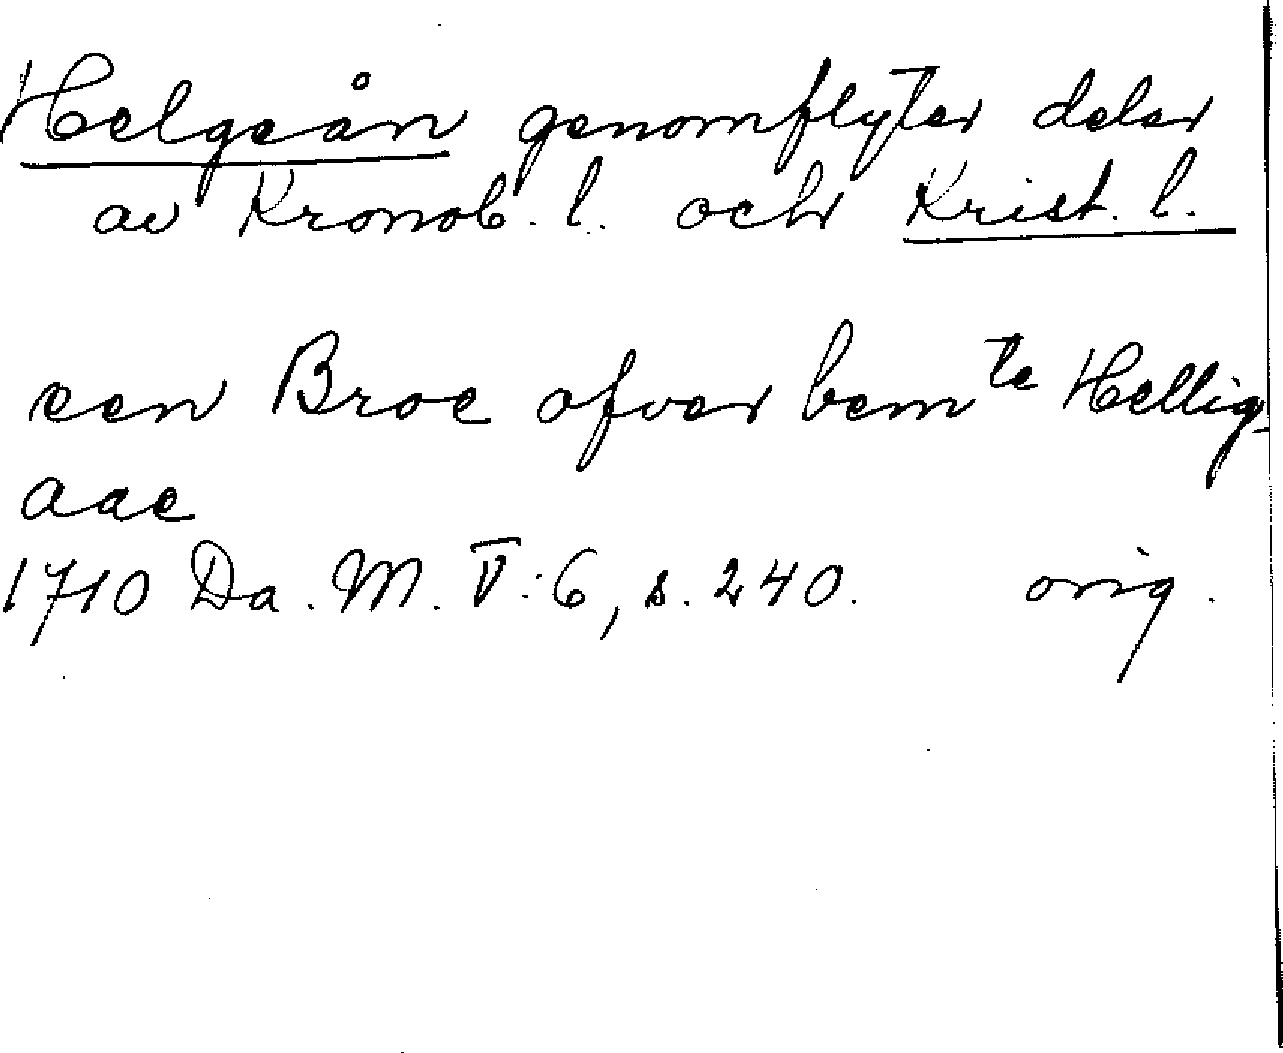 Helgeån genomflyter delar
av Kronob. l. och Krist. l.
een Broe ofver bem te Hellig-
aae
1710 Da. M. V:6, s. 240. orig.